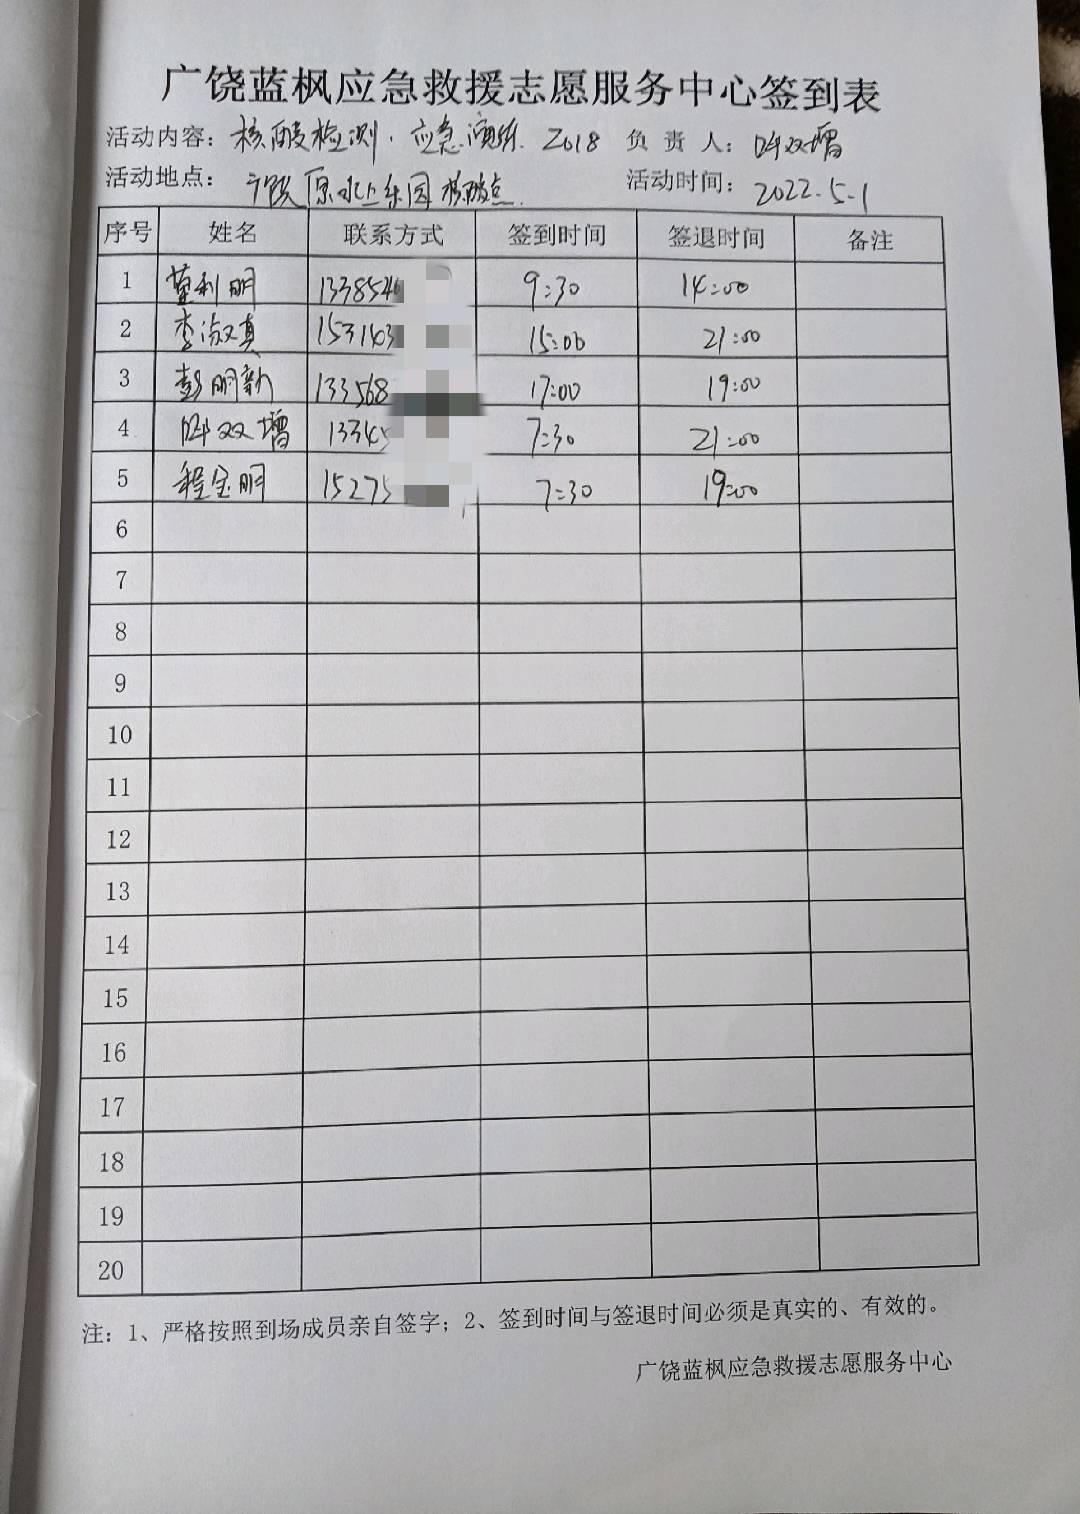 广饶蓝枫应急救援志愿服务中心签到表
活动内容：核酸检测.应急演练. 2018 负责人：双增
活动地点：原水上乐园核酸点. 活动时间：2022.5-1
序号 姓名 联系方式 签到时间 签退时间 备注
1 董利明 1338546 9:30 14:00
2 李淑真 1531403 15:00 21:00
3 彭明新 133568 17:00 19:00
4 双增 13345 7:30 21:00
5 程宝明 15275 7:30 19:00
6
7
8
9
10
11
12
13
14
15
16
17
18
19
20
注：1、严格按照到场成员亲自签字；2、签到时间与签退时间必须是真实的、有效的。
广饶蓝枫应急救援志愿服务中心